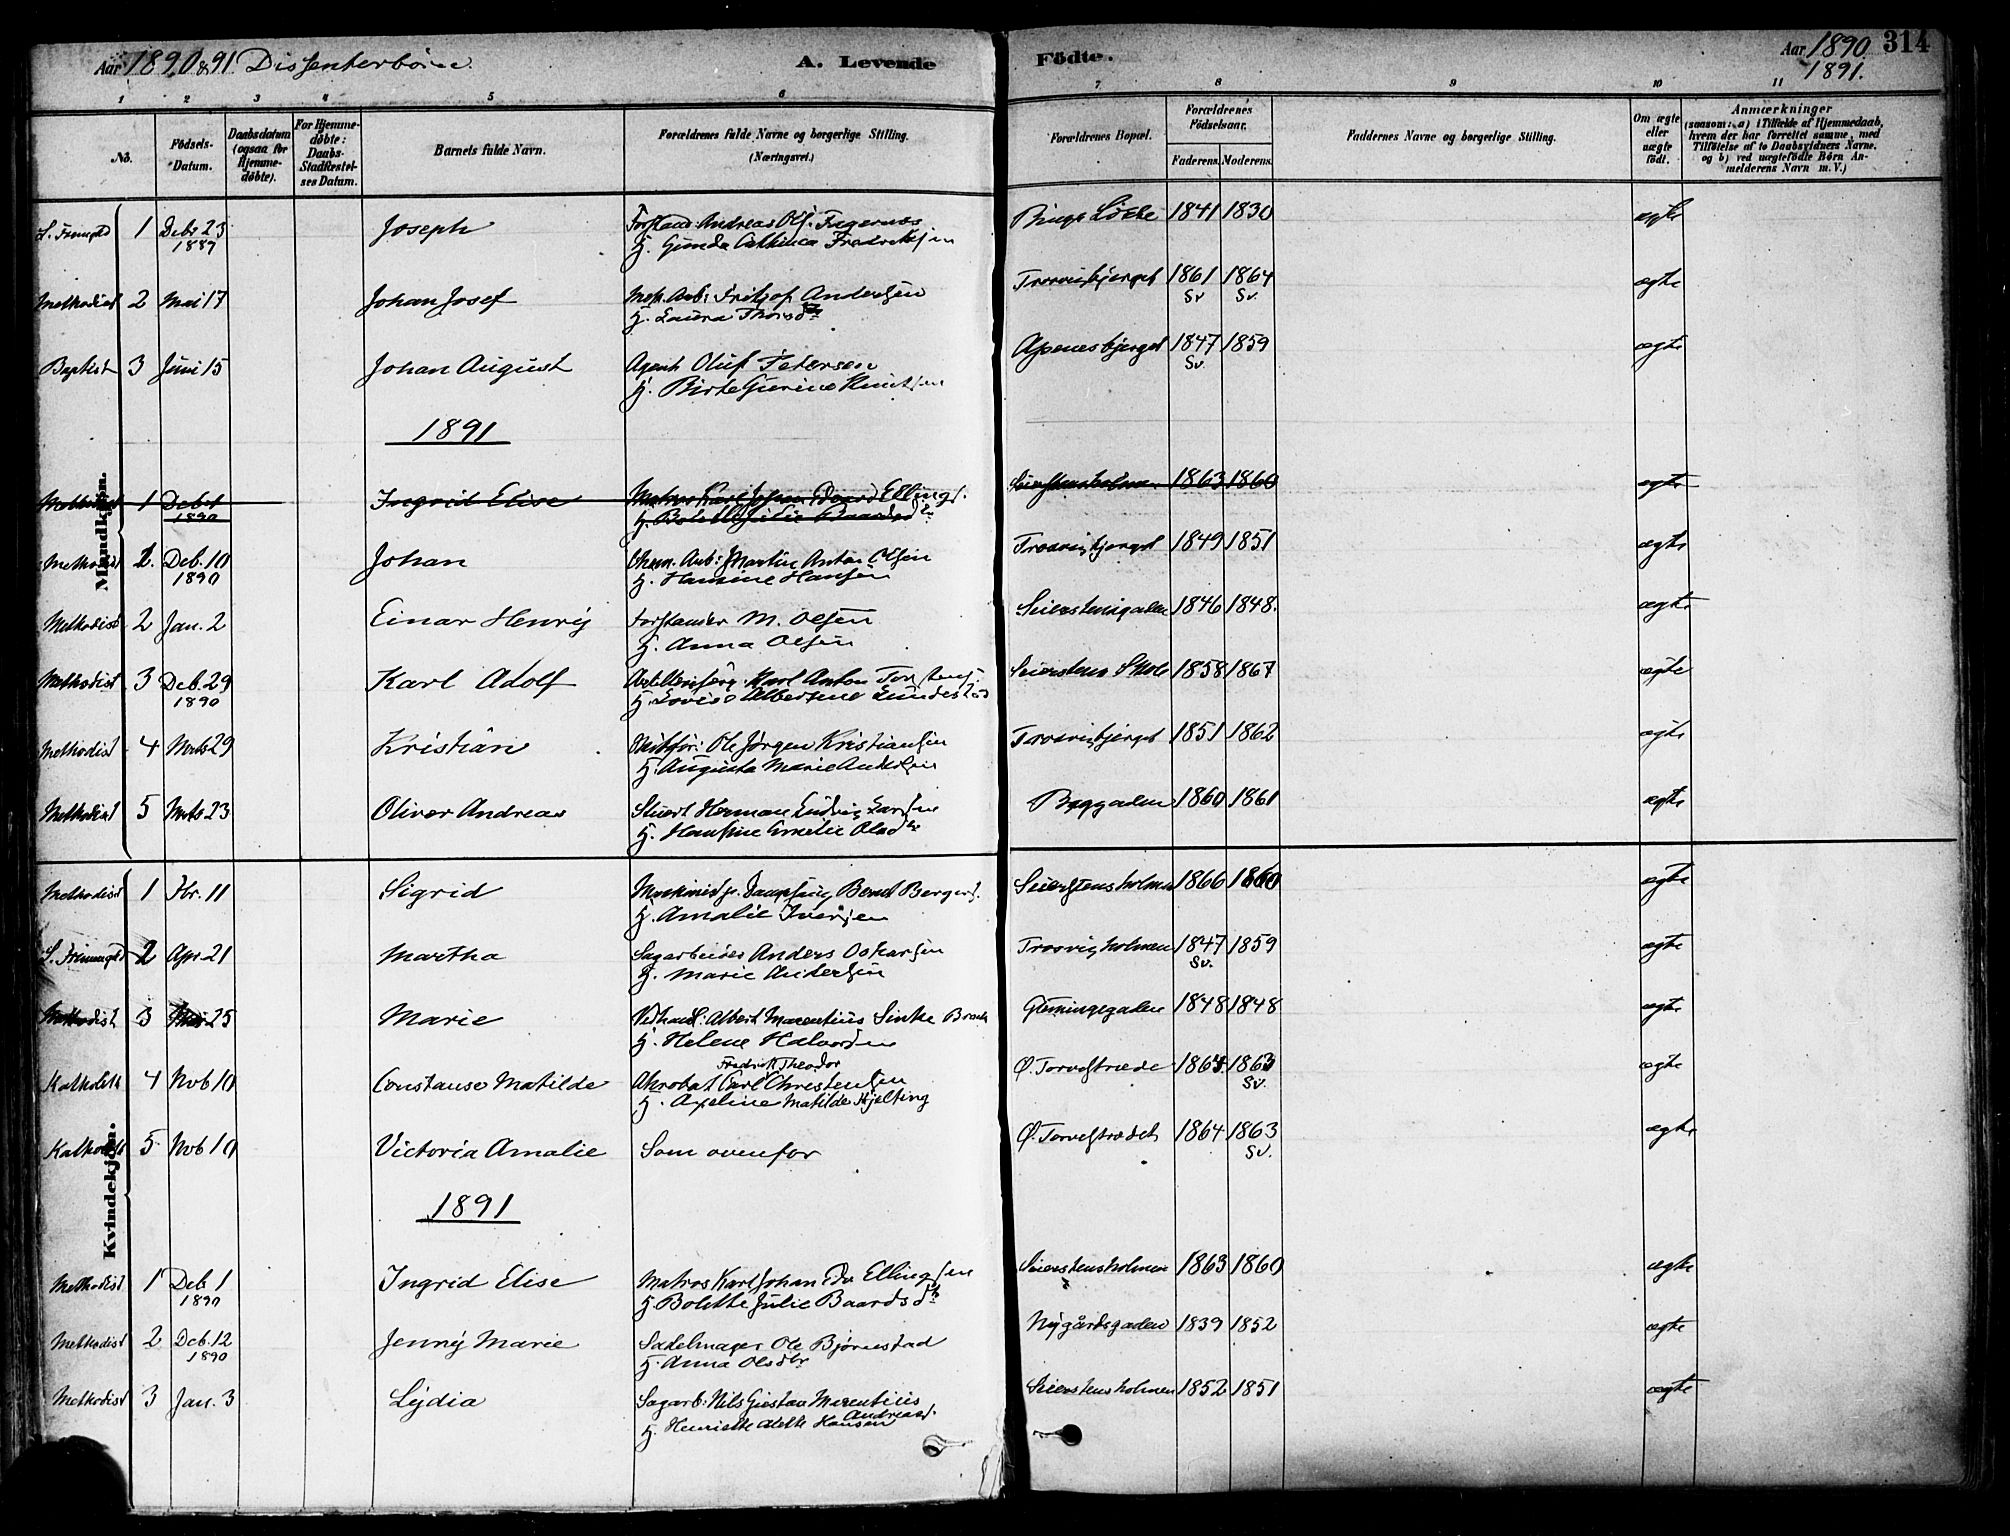 Aar 1890 & 91. Dissenterbörn. A. Levende Födte. Aar 1890. 1891. 314
1 2 3 4 5 6 7 8 9 10 11
No. Födsels-Datum. Daabsdatum (ogsaa for Hjemme-döbte). For Hjemme-döbte: Daabs-Stadfæstel-ses Datum. Barnets fulde Navn. Forældrenes fulde Navne og borgerlige Stilling. (Næringsvei.) Forældrenes Bopæl. Forældrenes Födselsaar. Faderens. Moderens. Faddernes Navne og borgerlige Stilling. Om ægte eller uægte födt. Anmærkninger (saasom: a) i Tilfælde af Hjemmedaab, hvem der har forrettet samme, med Tilföielse af to Daabsvidners Navne, og b) ved uægtefödte Börn An-melderens Navn m. V.)
Mandkjøn.
1 Debr 23 1889 Joseph Andreas Ols. Fagernæs 1841 1830 ægte
H. Gunda Cathinca Fredriksen
Methodist 2 Mai 17 Johan Josef Mek. Arb: Fritjof Andersen Trosvigbjerget 1861 Sv 1864 Sv. ægte
H. Laura Thorsd.
Baptist 3 Juni 15 Johan August Agent Oluf Petersen Apenesbjerget 1847 Sv. 1859 ægte
H. Birte Gurine Knutsen
1891
Methodist 1 Deb 1 1890 Ingrid Elise Matros Karl Johan Edvard Ellings. Seierstensholmen 1863 1860 ægte
H. Bolette Julie Baardsdr
Methodist 1. Deb. 10 1890 Johan Arb: Martin Anton Olsen Trosvigbjerget 1849 1851 ægte
H. Hansine Hansen
Methodist 2 Jan. 2 Einar Henrij Forstander M. Olsen Seierstensgaden 1846 1848. ægte
H. Anna Olsen
Methodist 3 Deb. 29 1890 Karl Adolf Karl Anton Seierstens Skole 1858 1867 ægte
H. Lovise Albertine Lundestad
Methodist 4 Marts 29 Kristian Ole Jörgen Kristiansen Trosvigbjerget 1851 1862 ægte
H. Augusta Marie Andersen
Methodist 5 Marts 23 Oliver Andreas Stuert Herman Ludvig Larsen Byggaden 1860 1861 ægte
H. Hansine Emelie Olsdr
Kvindekjøn.
Methodist 1 Fbr. 11 Sigrid Bernt Bergers. Seierstensholmen 1866 1860 ægte
H. Amalie Iversen
2 Apr. 21 Martha Sagarbeider Anders Oskarsen Trosvigholmen 1847 Sv. 1859 ægte
H. Marie Andersen
Methodist 3 Mai 25 Marie Vedhand: Albert Marentius Sinke Brock Glemmingegaden 1848 1848 ægte
H. Helene Halvorsen
Katholik 4 Nob 10 Constanse Matilde Akrobat Carl Fredrik Theodor Christensen Ø. Torvestræde 1864 1863 Sv. ægte
H. Axeline Matilde Hjelting
Katholik 5 Nob 10 Victoria Amalie Som ovenfor Ø. Torvestrædet 1864 1863 Sv. ægte
1891
Methodist 1 Deb 1 1890 Ingrid Elise Matros Karl Johan Edv Ellingsen Seierstensholmen 1863 1860 ægte
H. Bolette Julie Baardsdr
Methodist 2 Deb. 12 1890 Jenny Marie Sadelmager Ole Bjørnestad Nygårdsgaden 1839 1852 ægte
H. Anna Olsdtr
Methodist 3 Jan. 3 Lydia Sagarb: Nils Gustav Marentius Andreass. Seierstensholmen 1852 1851 ægte
H. Henriette Alette Hansen